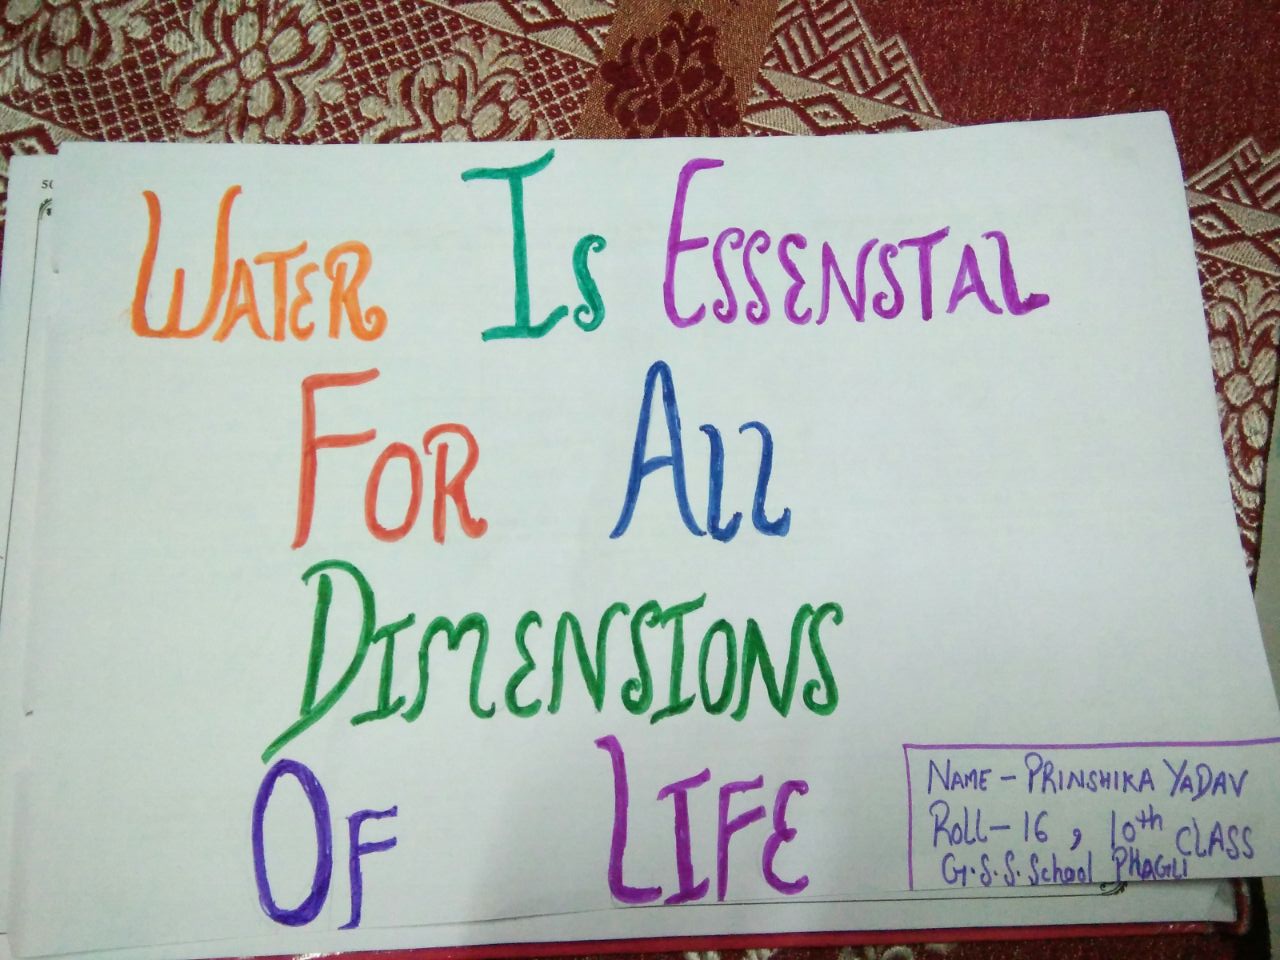 WATER IS ESSENSTAL
FOR All
DIMENSIONS
OF LIFE
NAME - PRINSHIKA YADAV
Roll - 16 , 10th CLASS
G.S.S. School PHAGLI